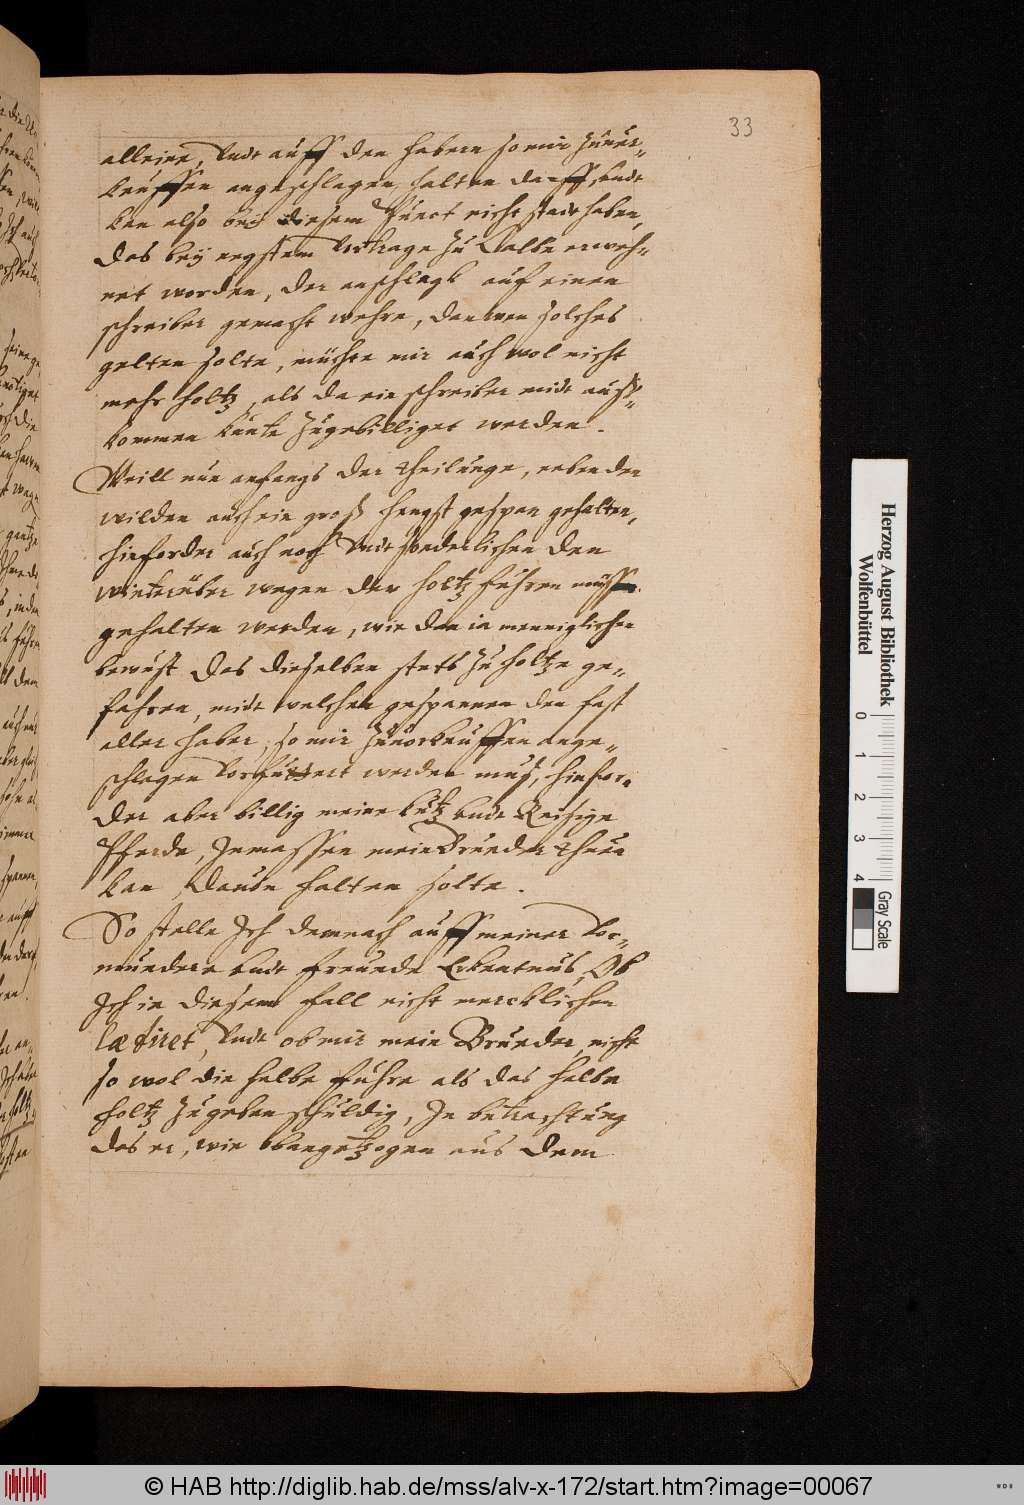 33
alleine, Vndt auff den habern so mir zuuer-
kauffen angeschlagen halten darff, vndt
kan also bei diesem Punct nicht stadt haben,
das beÿ negstem Vertrage zu Calbe erweh-
net worden, der anschlagk auf einen
schreiber gemacht wehre, dan wen solches
gelten solte, müchte mir auch wol nicht
mehr holtz, als da ein schreiber midt auß-
kommen kunte zugebilliget werden.
Weill nun anfangs der theilunge, neben den
wilden auch ein groß hengst gespan gehalten,
hinforder auch noch Vndt sonderlichen den
winter über wegen der holtz fuhren müssen
gehalten werden, wie dan in menniglichen
bewust das dieselben stets zu holtze ge-
fahren, midt welchen gespannen den fast
aller haber, so mir zuuorkauffen ange-
schlagen Vorfuttert werden mus, hinfor-
der aber billig meine kutz vndt Reisige
Pferde, Inmassen mein Bruder thuen
kan, dauon halten solte.
So stelle Ich demnach auff meiner Vor-
mundere vndt freunde Erkentnus, Ob
Ich in diesem fall nicht mercklichen
lædiret, Vndt ob mir mein Bruder nicht
so wol die halbe fuhre als das halbe
holtz zugeben schuldig, In betrachtung
das er, wie obangetzogen aus dem
Herzog August Bibliothek
Wolfenbüttel
0 1 2 3 4
Gray Scale
© HAB http://diglib.hab.de/mss/alv-x-172/start.htm?image=00067